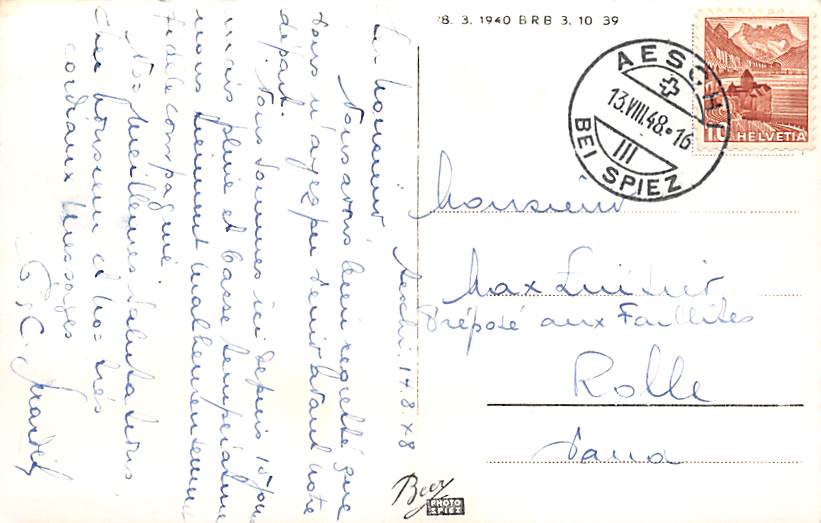 8. 3. 1940 B R B 3. 10 39
AESCHI
13.VIII.48.-16
III
BEI SPIEZ
10 HELVETIA
Aeschi. 14.8.48
Monsieur
Nous avons bien regretté que
vous n'ayez pu venir avant notre
départ.
Nous sommes ici depuis 15 jours
mais pluie et basse température
nous tiennent malheureusement
fidèle compagnie
Nos meilleures salutations
cher Monsieur et nos très
cordiaux messages
Monsieur
Max
Préposé aux Faillites
Rolle
Vaud
Beer
PHOTO
SPIEZ